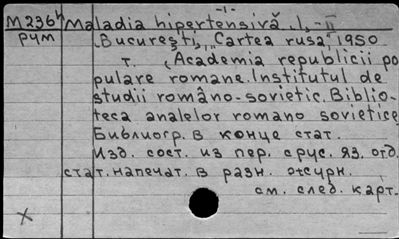 -1-
M236⁴ Maladia hipertensivă. I, - II
рум București, "Cartea rusă", 1950
т. (Academia republicii po
pulare romane. Institutul de
studii româno-sovietic. Biblio-
teca analelor romano sovietice
Библиогр. в конце стат.
Изд. сост. из пер. с рус. яз. отд.
стат. напечат. в разн.
см. след. карт.
X